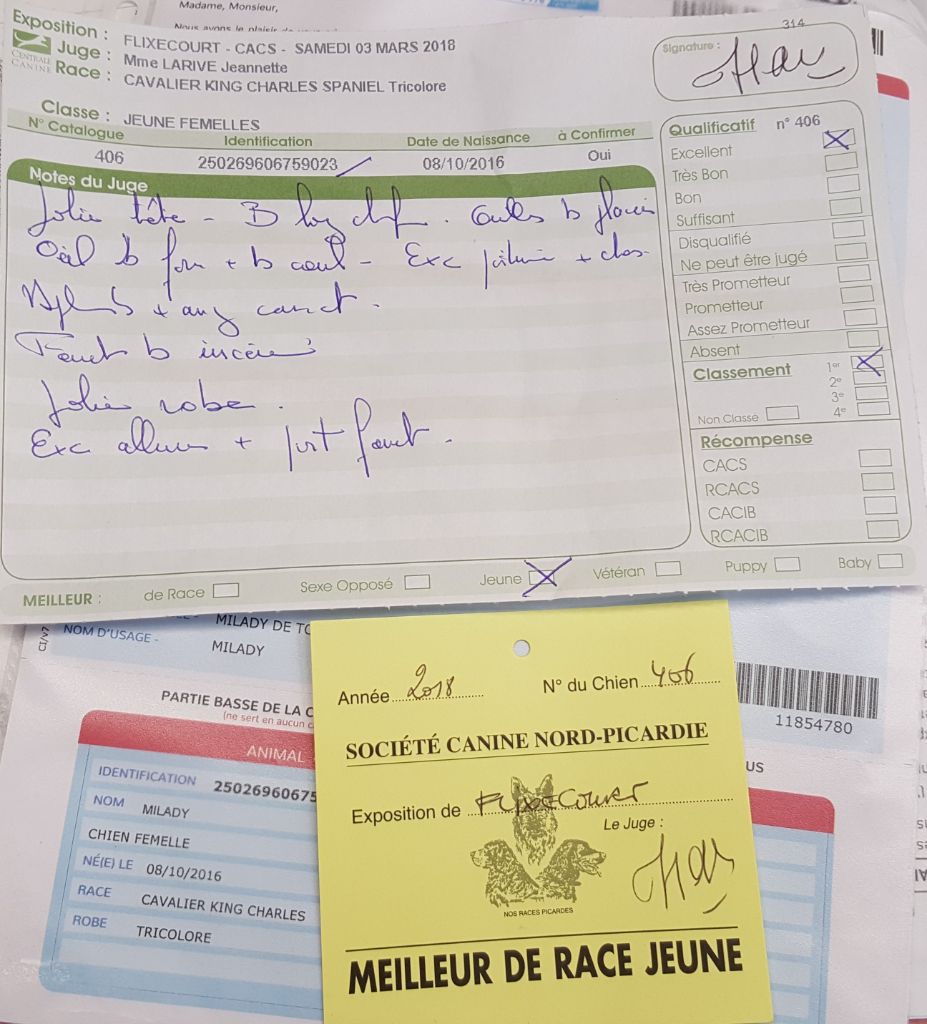 Madame, Monsieur,
Nous avons le plaisir de
314
Exposition : FLIXECOURT - CACS - SAMEDI 03 MARS 2018
Juge : Mme LARIVE Jeannette
CENTRALE CANINE
Race : CAVALIER KING CHARLES SPANIEL Tricolore
Signature :
Classe : JEUNE FEMELLES
N° Catalogue Identification Date de Naissance à Confirmer
406 250269606759023 08/10/2016 Oui
Notes du Juge
Jolie tête - B
Oeil b + b - Exc +
b + correct.
Fouet b
Jolie robe.
Exc allure + port fouet.
Qualificatif n° 406
Excellent
Très Bon
Bon
Suffisant
Disqualifié
Ne peut être jugé
Très Prometteur
Prometteur
Assez Prometteur
Absent
Classement 1er
2e
3e
Non Classé 4e
Récompense
CACS
RCACS
CACIB
RCACIB
MEILLEUR : de Race Sexe Opposé Jeune Vétéran Puppy Baby
MILADY DE TO
NOM D'USAGE - MILADY
PARTIE BASSE DE LA C
(ne sert en aucun c
ANIMAL
IDENTIFICATION 25026960675
NOM MILADY
CHIEN FEMELLE
NÉ(E) LE 08/10/2016
RACE CAVALIER KING CHARLES
ROBE TRICOLORE
11854780
US
Année 2018 N° du Chien 406
SOCIÉTÉ CANINE NORD-PICARDIE
Exposition de FLIXECOURT
Le Juge :
NOS RACES PICARDES
MEILLEUR DE RACE JEUNE